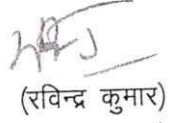 (रविन्द्र कुमार)